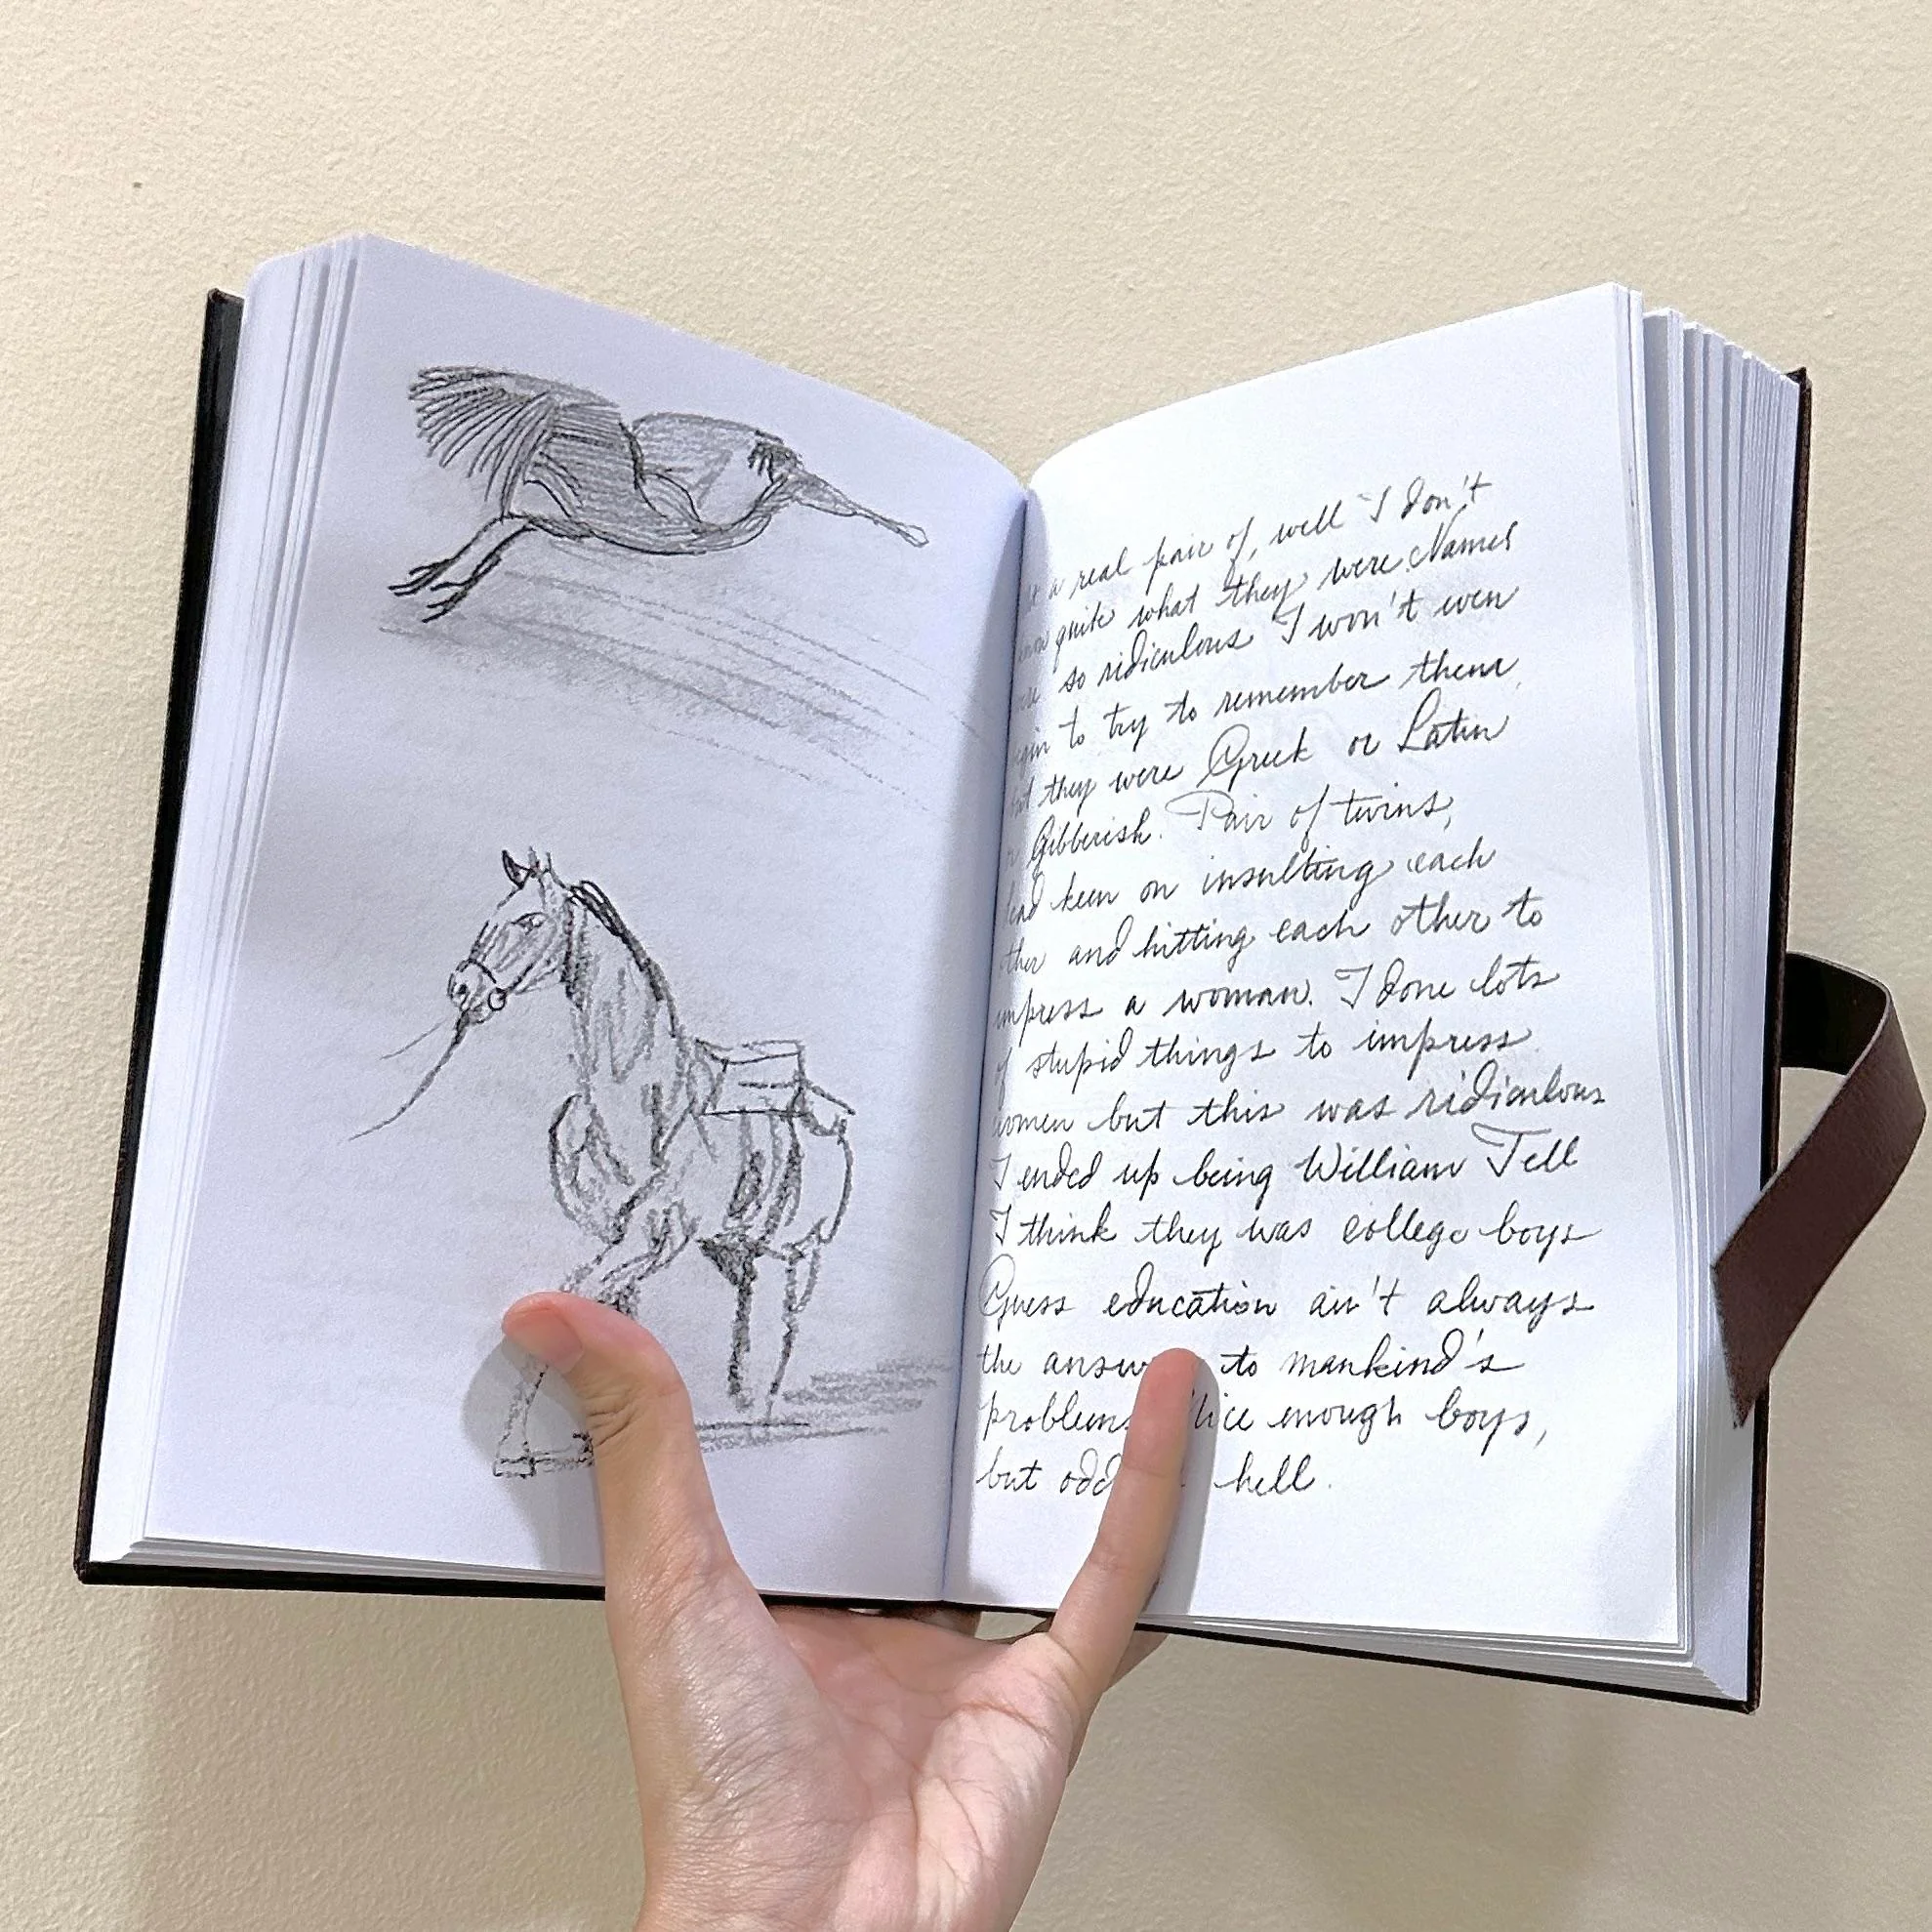 a real pair of, well I don't
quite what they were. Names
so ridiculous I won't even
to try to remember them,
they were Greek or Latin
Gibberish. Pair of twins,
keen on insulting each
and hitting each other to
impress a woman. I done lots
of stupid things to impress
women but this was ridiculous
I ended up being William Tell
I think they was college boys
Guess education ain't always
the to mankind's
enough boys,
but hell.